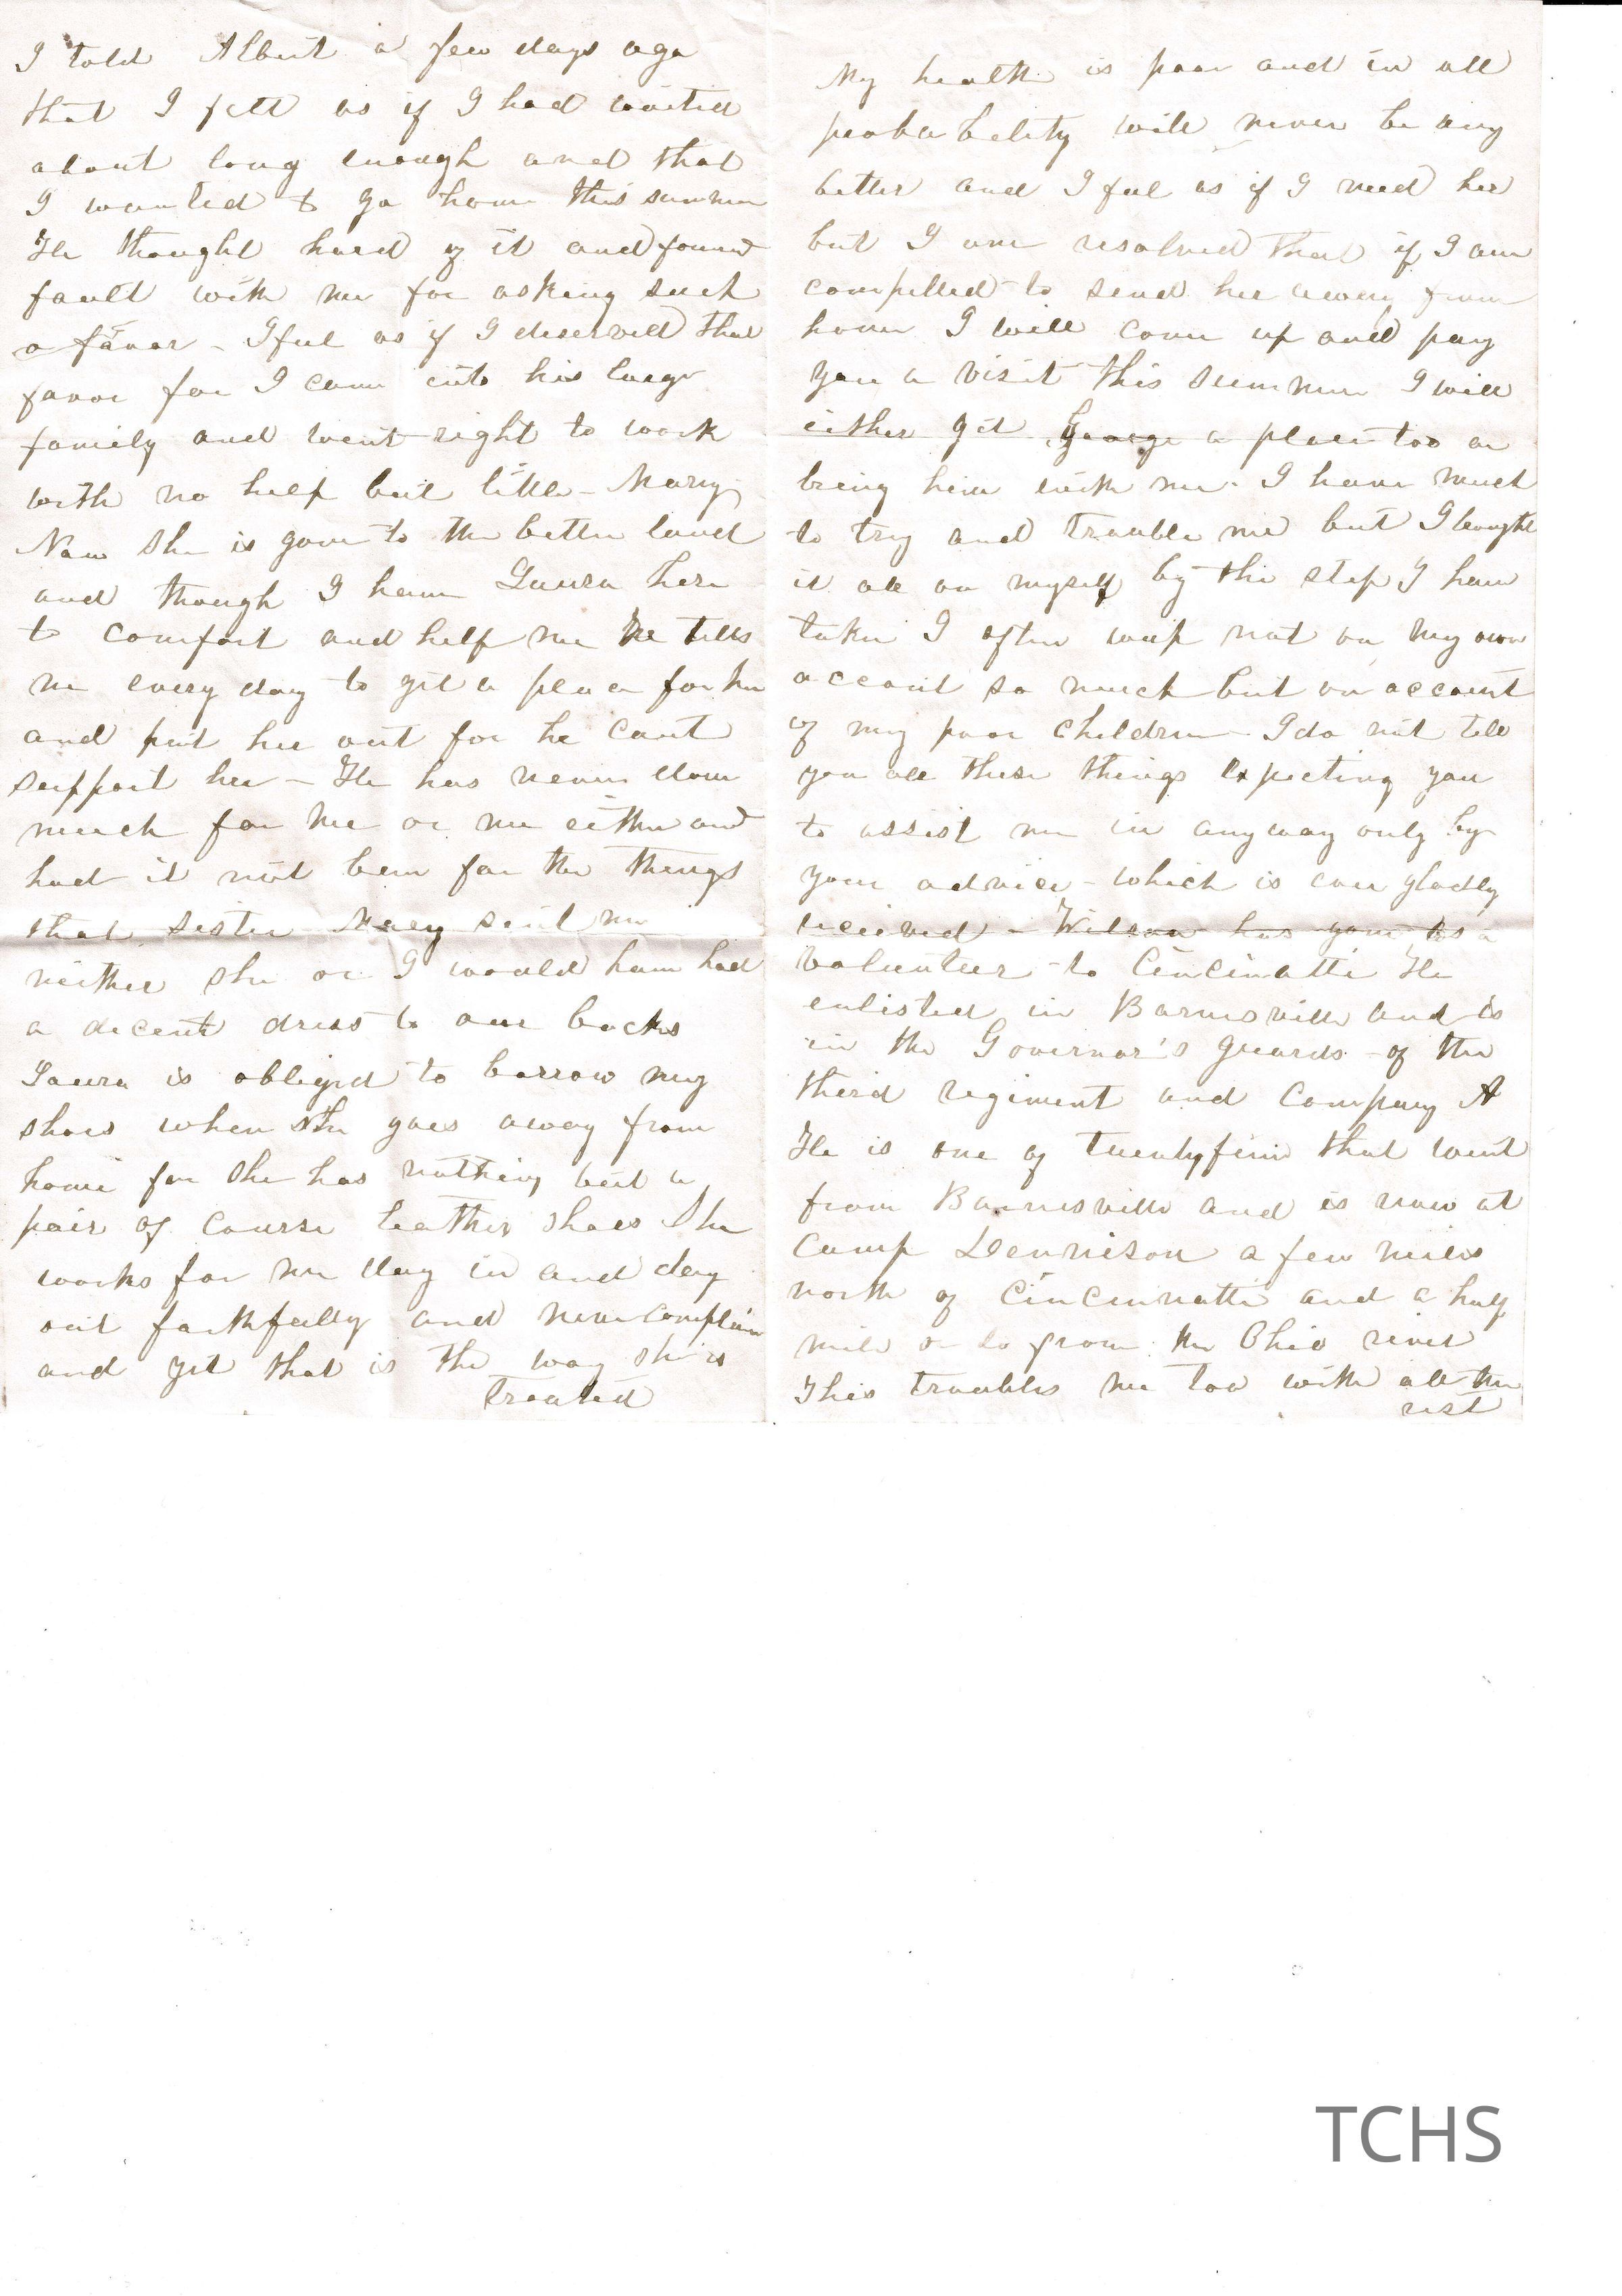 I told Albert a few days ago
that I felt as if I had waited
about long enough and that
I wanted to go home this summer
He thought hard of it and found
fault with me for asking such
a favor - I feel as if I deserved that
favor for I came into his large
family and went right to work
with no help but little Mary
Now she is gone to the better land
and though I have Laura here
to comfort and help me He tells
me every day to get a place for her
and put her out for he cant
support her - He has never done
much for her or me either and
had it not been for the things
that sister Mary sent me
neither she or I would have had
a decent dress to our backs
Laura is obliged to borrow my
shoes when she goes away from
home for she has nothing but a
pair of course leather shoes She
works for me day in and day
out faithfully and never complain
and yet that is the way she is
treated
My health is poor and in all
probability will never be any
better and I feel as if I need her
but I am resolved that if I am
compelled to send her away from
home I will come up and pay
you a visit this summer I will
either get George a place too or
bring him with me. I have much
to try and trouble me but I bought
it all on myself by the step I have
taken I often weep not on my own
account so much but on account
of my poor children - I do not tell
you all these things expecting you
to assist me in anyway only by
your advice - which is ever gladly
recieved - Wilson has gone as a
volunteer to Cincinatti He
enlisted in Barnesville and is
in the Governor's guards - of the
third regiment and Company A
He is one of twentyfive that went
from Barnesville and is now at
Camp Dennison a few miles
north of Cincinnatti and a half
mile or so from the Ohio river
This troubles me too with all the
rest
TCHS